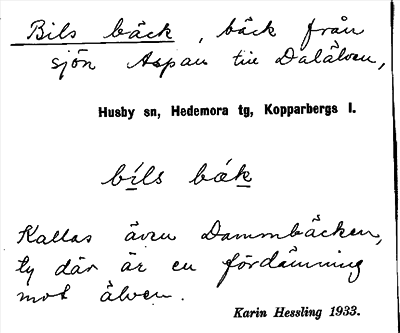 Bils bäck, bäck från
sjön Aspan till Dalälven,
Husby sn, Hedemora tg, Kopparbergs l.
bíls bák
Kallas även Dammbäcken,
ty där är en fördämning
mot älven.
Karin Hessling 1933.